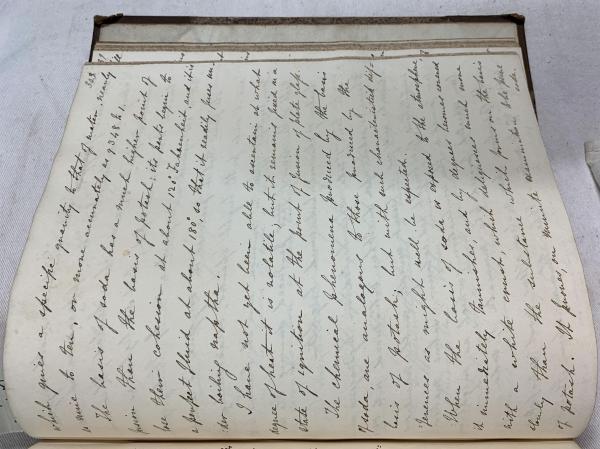 which gives a specific gravity to that of water, nearly
as nine to ten, or more accurately as .9348 to 1.
The basis of soda has a much higher point of
fusion than the basis of potash; its parts begin to
lose their cohesion at about 120° Fahrenheit, and it is
a perfect fluid at about 180°, so that it readily fuses un-
der boiling naptha.
I have not yet been able to ascertain at what
degree of heat it is volatile; but it remains fixed in a
state of ignition at the point of fusion of plate glass.
The chemical phenomena produced by the basis
of soda are analogous to those produced by the
basis of potash; but with such characteristical dif-
ferences as might well be expected.
When the basis of soda is exposed to the atmosphere
it immediately tarnishes, and by degrees becomes covered
with a white crust, which deliquesces much more
slowly than the substance which forms on the basis
of potash. It proves, on minute examination to be pure
soda.